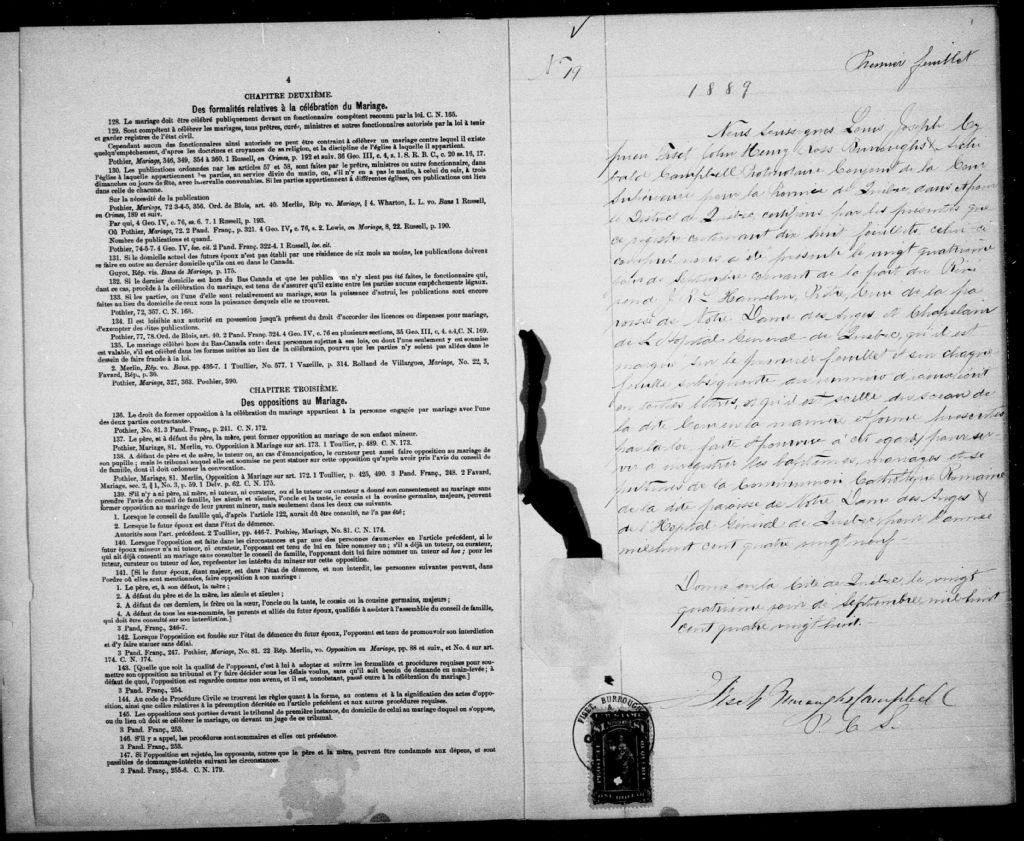 4
CHAPITRE DEUXIÈME.
Des formalités relatives à la célébration du Mariage.
128. Le mariage doit être célébré publiquement devant un fonctionnaire compétent reconnu par la loi. C. N. 165.
129. Sont compétent à célébrer les mariages, tous prêtres, curés, ministres et autres fonctionnaires autorisés par la loi à tenir
et garder registres de l'état civil.
Cependant aucun des fonctionnaires ainsi autorisés ne peut être contraint à célébrer un mariage contre lequel il existe
quelqu'empêchement, d'après les doctrines et croyances de sa religion, et la discipline de l'église à laquelle il appartient.
Pothier, Mariage, 346, 349, 354 à 360. 1 Russell, on Crimes, p. 192 et suiv. 36 Geo. III, c. 4, s. 1. S. R. B. C., c. 20 ss. 16, 17.
130. Les publications ordonnées par les articles 57 et 58, sont faites par le prêtre, ministre ou autre fonctionnaire, dans
l'église à laquelle appartiennent les parties, au service divin du matin, ou, s'il n'y en a pas le matin, à celui du soir, à trois
dimanches ou jours de fête, avec intervalle convenables. Si les parties appartiennent à différentes églises, ces publications ont lieu
dans celle de chacune.
Sur la nécessité de la publication
Pothier, Mariage, 72 3-4-5, 356. Ord. de Blois, art. 40. Merlin, Rép vo. Mariage, § 4. Wharton, L. L. vo. Bans 1 Russell,
on Crimes, 189 et suiv.
Par qui, 4 Geo. IV, c. 76, ss. 6. 7. 1 Russell, p. 193.
Où Pothier, Mariage, 72. 2 Pand. Franç., p. 321. 4 Geo. IV, c. 76, s. 2. Lewis, on Mariage, 8, 22. Russell, p. 190.
Nombre de publications et quand.
Pothier, 74-5-7. 4 Geo. IV, loc. cit. 2 Pand. Franç. 322-4. 1 Russell, loc. cit.
131. Si le domicile actuel des futurs époux n'est pas établi par une résidence de six mois au moins, les publications doivent
se faire en outre au dernier domicile qu'ils ont eu dans le Canada.
Guyot, Rép. vis. Bans de Mariage, p. 175.
132. Si le dernier domicile est hors du Bas Canada et que les publications n'y aient pas été faites, le fonctionnaire qui,
dans ce cas, procède à la célébration du mariage, est tenu de s'assurer qu'il existe entre les parties aucuns empêchements légaux.
133. Si les parties, ou l'une d'elle sont relativement au mariage, sous la puissance d'autrui, les publications sont encore
faites au lieu du domicile de ceux sous la puissance desquels elle se trouvent.
Pothier, 72, 357. C. N. 168.
134. Il est loisible aux autorité en possession jusqu'à présent du droit d'accorder des licences ou dispenses pour mariage,
d'exempter des dites publications.
Pothier, 77, 78. Ord. de Blois, art. 40. 2 Pand. Franç. 324. 4 Geo. IV, c. 76 en plusieurs sections, 35 Geo. III, c. 4. s.4, C. N. 169.
135. Le mariage célébré hors du Bas-Canada entre deux personnes sujettes à ses lois, ou dont l'une seulement y est soumise
est valable, s'il est célébré dans les formes usitées au lieu de la célébration, pourvu que les parties n'y soient pas allées dans le
dessein de faire fraude à la loi.
2. Merlin, Rép. vo. Bans, pp. 486-7. 1 Toullier, No. 577. 1 Vazeille, p. 314. Rolland de Villargues, Mariage, No. 22, 3,
Favard, Rép., p. 30.
Pothier, Mariage, 327, 363. Pothier, 390.
CHAPITRE TROISIÈME.
Des oppositions au Mariage.
136. Le droit de former opposition à la célébration du mariage appartient à la personne engagée par mariage avec l'une
des deux parties contractantes.
Pothier, No. 81. 3 Pand. Franç., p. 241. C. N. 172.
137. Le père, et à défaut du père, la mère, peut former opposition au mariage de son enfant mineur.
Pothier, Mariage, 81. Merlin, vo. Opposition à Mariage sur art. 173. 1 Toullier, p. 489. C. N. 173.
138. A défaut de père et de mère, le tuteur ou, au cas d'émancipation, le curateur peut aussi faire opposition au mariage de
son pupille ; mais le tribunal auquel elle est soumise ne peut statuer sur cette opposition qu'après avoir pris l'avis du conseil de
famille, dont il doit ordonner la convocation.
Pothier, Mariage, 81. Merlin, Opposition à Mariage sur art. 172. 1 Toullier, p. 425, 490. 3 Pand. Franç., 248. 2 Favard,
Mariage, sec. 2, § 1, No. 3, p. 59. 1 Dév. p. 62. C. N. 175.
139. S'il n'y a ni père, ni mère, ni tuteur, ni curateur, ou si le tuteur ou curateur a donné son consentement au mariage sans
prendre l'avis du conseil de famille, les aïeuls et aïeules, l'oncle et la tante, le cousin et la cousine germains, majeurs, peuvent
former opposition au mariage de leur parent mineur, mais seulement dans les deux cas suivants.
1. Lorsque le conseil de famille qui, d'après l'article 122, aurait dû être consulté, ne l'a pas été ;
2. Lorsque le futur époux est dans l'état de démence.
Autorités sous l'art. précédent. 2 Toullier, pp. 446-7. Pothier, Mariage, No. 81. C. N. 174.
140. Lorsque l'opposition est faite dans les circonstances et par une des personnes énumérées en l'article précédent, si le
futur époux mineur n'a ni tuteur, ni curateur, l'opposant est tenu de lui en faire nommer un ; s'il a déjà un tuteur, ou curateur,
qui ait déjà consenti au mariage sans consulter le conseil de famille, l'opposant doit lui faire nommer un tuteur ad hoc ; pour les
tuteur, curateur ou tuteur ad hoc, représenter les intérêts du mineur sur cette opposition.
141. [Si le futur époux, étant majeur, est dans l'état de démence, et non interdit, les personnes suivantes peuvent, dans
l'ordre où elles sont mentionnées, faire opposition à son mariage :
1. Le père, et, à son défaut, la mère ;
2. A défaut du père et de la mère, les aïeuls et aïeules ;
3. A défaut de ces derniers, le frère ou la sœur, l'oncle ou la tante, le cousin ou la cousine germains, majeurs ;
4. A défaut de tous les sus-nommés, les parents et alliés du futur époux, qualifiés à assister à l'assemblée du conseil de famille,
qui doit être consulté sur son interdiction.]
3 Pand. Franç., 246-7.
142. Lorsque l'opposition est fondée sur l'état de démence du futur époux, l'opposant est tenu de promouvoir son interdiction
et d'y faire statuer sans délai.
3 Pand. Franç., 247. Pothier, Mariage, No. 81. 22 Rép. Merlin, vo. Opposition au Mariage, pp. 88 et suiv., et No. 4 sur art.
174. C. N. 174.
143. [Quelle que soit la qualité de l'opposant, c'est à lui à adopter et suivre les formalités et procédures requises pour sou-
mettre son opposition au tribunal et l'y faire décider sous les délais voulus, sans qu'il soit besoin de demande en main-levée ; à
défaut de quoi, l'opposition est regardée comme non avenu, et il est, nonobstant, passé outre à la célébration du mariage.]
3 Pand. Franç., 254.
144. Au code de Procédure Civile se trouvent les règles quant à la forme, au contenu et à la signification des actes d'oppo-
sition, ainsi que celles relatives à la péremption décrétée en l'article précédent et aux autres procédures requises.
145. Les oppositions sont portées devant le tribunal de première instance, du domicile de celui au mariage duquel on s'oppose,
ou du lieu où doit se célébrer le mariage, ou devant un juge de ce tribunal.
3 Pand. Franç., 253.
146. S'il y a appel, les procédures sont sommaires et elles ont préséance.
3 Pand. Franç., 253.
147. Si l'opposition est rejetée, les opposants, autres que le père et la mère, peuvent être condamnés aux dépens, et sont
passibles de dommages-intérêts suivant les circonstances.
3 Pand. Franç., 255-6. C. N. 179.
No 19
Premier feuillet
1889
Nous soussignés Louis Joseph Cy
prien Fiset John Henry Ross Burroughs & Archi
bald Campbell Protonotaire Conjoint de la Cour
Supérieure pour la Province de Québec dans et pour
le District de Québec certifions par les présentes que
ce registre contenant dix huit feuillets celui-ci
compris nous a été présenté le vingt quatrième
jour de Septembre courant de la part du Révé
rend Hamelin, Prêtre, Curé de la pa
roisse de Notre Dame des Anges et Chapelain
de L'Hopital Général de Québec, qu'il est
marqué sur le premier feuillet et sur chaque
feuillet subséquent du numéro d'icelui écrit
en toutes lettres, et qu'il est scellé du sceau de
la dite Cour en la manière et forme prescrites
par la loi faite et pourvue à cet égard pour ser
vir à enregistrer les baptêmes, mariages et sé
pultures de la Communion Catholique Romaine
de la dite paroisse de Notre Dame des Anges &
de l'Hopital Général de Québec pour l'année
mil huit cent quatre vingt neuf
Donné en la Cité de Québec, le vingt
quatrième jour de Septembre mil huit
cent quatre vingt huit.
Fiset Burroughs Campbell
P. C. S.
FISET, BURROUGHS
ONE DOLLAR